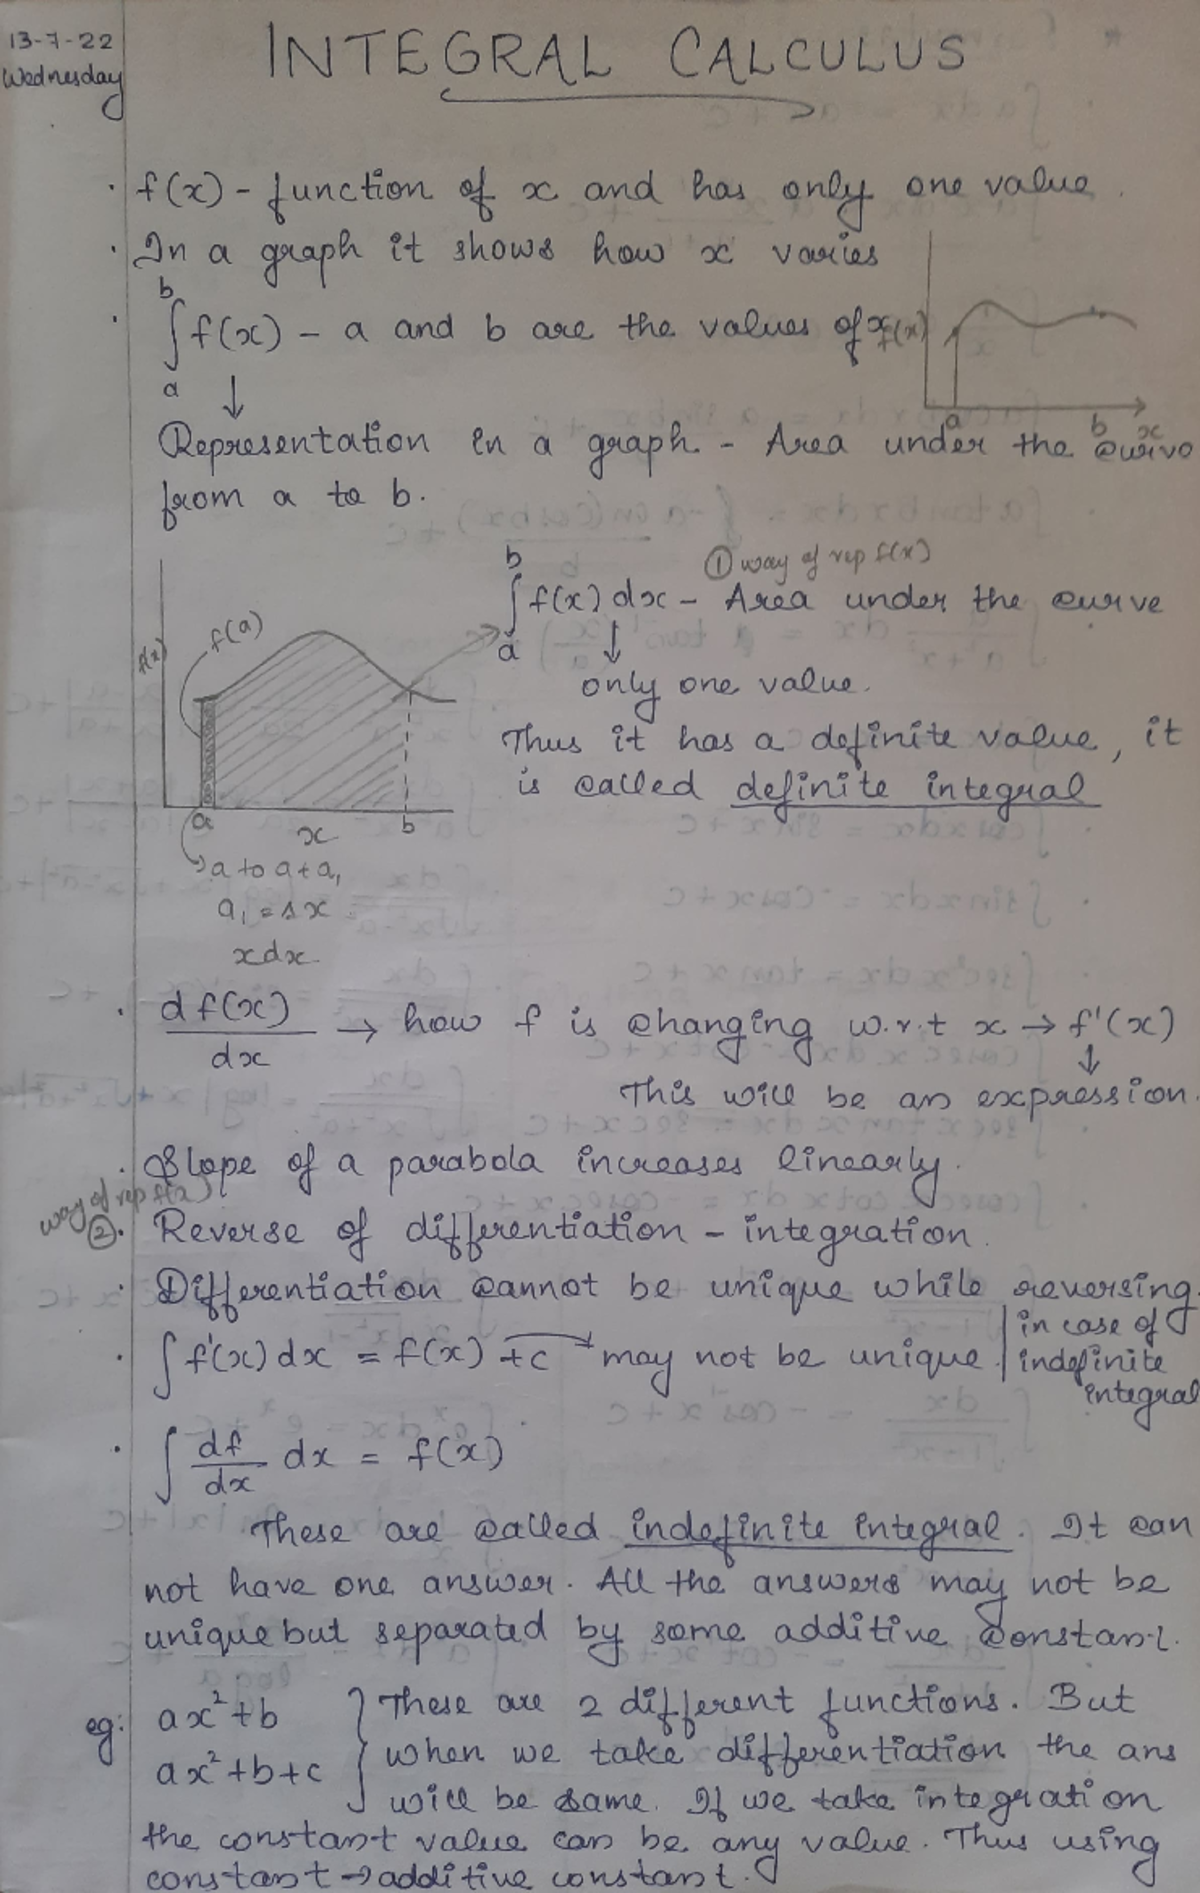 13-7-22
Wednesday
INTEGRAL CALCULUS
· f(x) - function of x and has only one value.
· In a graph it shows how x varies
· ∫ₐᵇ f(x) - a and b are the values of x
f(x)
a b x
↓
Representation in a graph - Area under the curve
from a to b.
① way of rep f(x)
∫ₐᵇ f(x) dx - Area under the curve
↓
only one value.
Thus it has a definite value, it
is called definite integral
f(a)
f(x)
a x b
a to a + a₁
a₁ = Δx
xdx
· df(x)/dx → how f is changing w.r.t x → f'(x)
↓
This will be an expression.
· Slope of a parabola increases linearly.
way of rep f(x)
②. Reverse of differentiation - integration.
· Differentiation cannot be unique while reversing.
· ∫ f'(x) dx = f(x) + c → may not be unique. | in case of
indefinite
integral
· ∫ df/dx dx = f(x)
These are called indefinite integral. It can
not have one answer. All the answers may not be
unique but separated by some additive constant.
eg: ax² + b } These are 2 different functions. But
ax² + b + c } when we take differentiation the ans
will be same. If we take integration
the constant value can be any value. Thus using
constant → additive constant.